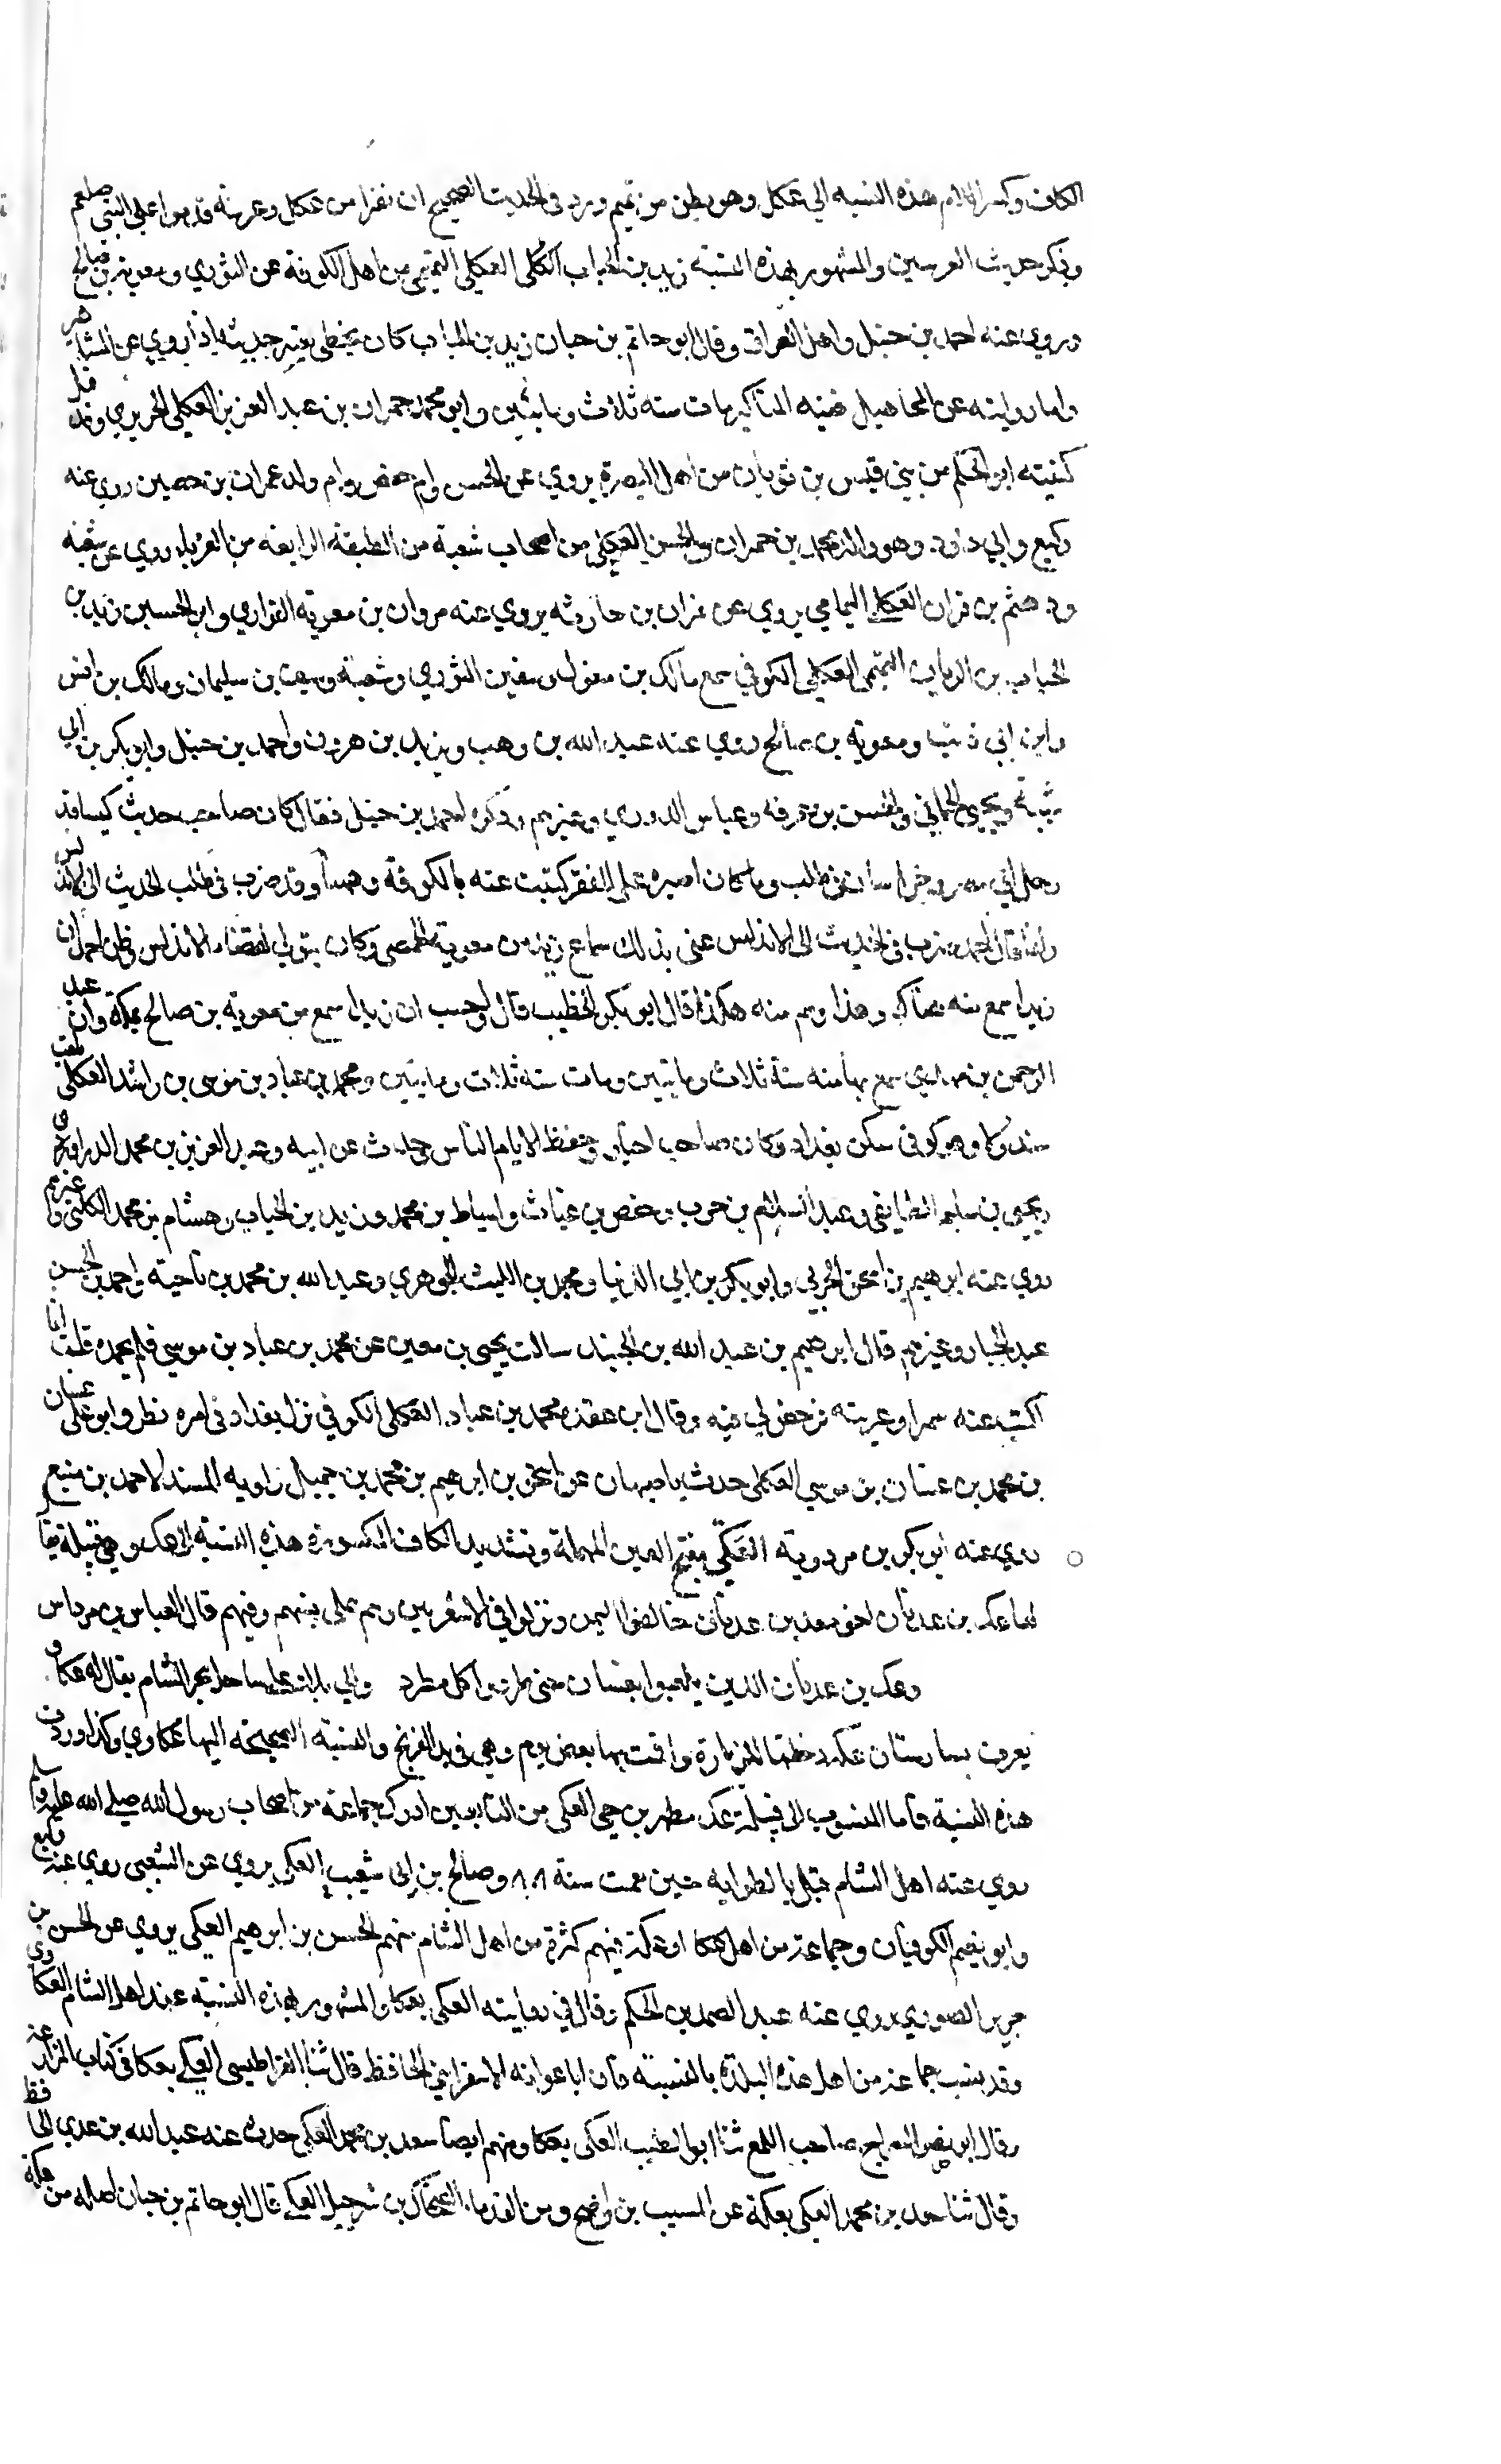 الكاف وكسر اللام هذه النسبه الي عكل وهو بطن من تميم ورد في الحديث الصحيح ان نفرا من عكل وعرينه قدموا علي النبي صلعم
وذكر حديث العرنيين والمشهور بهذه النسبة زيد بن الحباب العكلي التميمي من اهل الكوفة عن الثوري ومعوية بن صالح
وروي عنه احمد بن حنبل واهل العراق وقال ابو حاتم بن حبان زيد بن الحباب كان يخطي يعتبر حديثه اذا روي عن المشاهير
واما روايته عن المجاهيل ففيه المناكير مات سنه ثلاث ومايتين وابو محمد حمران بن عبد العزيز العكلي الحريري وقد قيل
كنيته ابو الحكم من بني قيس بن ثوبان من اهل البصرة يروي عن الحسن وام حفص وام ولد عمران بن حصين روي عنه
وكيع وابي داود وهو والد محمد بن حمران والحسن العكلي من اصحاب شعبة من الطبقة الرابعة من الغرباء روي عن شعبه
ودهثم بن قران العكلي اليمامي يروي عن نمران بن حارثه يروي عنه مروان بن معوية الفزاري وابو الحسين زيد بن
الحباب بن الريان التميمي العكلي الكوفي سمع مالك بن مغول وسفين الثوري وشعبة وسيف بن سليمان ومالك بن انس
وابن ابي ذئب ومعوية بن صالح روي عنه عبد الله بن وهب ويزيد بن هرون واحمد بن حنبل وابو بكر بن ابي
شيبة ويحيي الحماني والحسن بن عرفه وعباس الدوري وغيرهم وذكره احمد بن حنبل فقال كان صاحب حديث كيسا قد
رحل الي مصر وخراسان في طلب وما كان اصبره علي الفقر كتبت عنه بالكوفة وههنا وقد ضرب في طلب الحديث الي الاندلس
وانما قال احمد ضرب في الحديث الي الاندلس عني بذلك سماع زيد من معوية الحمصي وكان يتولي قضاء الاندلس فظن احمد ان
زيدا سمع منه هناك وهذا وهم منه هكذا قال ابو بكر الخطيب قال واحسب ان زيدا سمع من معوية بن صالح بمكة وان عبد
الرحمن بن مهدي سمع بها منه سنة ثلاث ومايتين ومات سنة ثلاث ومايتين ومحمد بن عباد بن موسي بن راشد العكلي يلقب
سندولا وهو كوفي سكن بغداد وكان صاحب اخبار وحفظ لايام الناس حدث عن ابيه وعبد العزيز بن محمد الدراوردي
ويحيي بن سليم الطايفي وعبد السلام بن حرب وحفص بن غياث واسباط بن محمد وزيد بن الحباب وهشام بن محمد الكلبي وغيرهم
روي عنه ابرهيم بن اسحق الحربي وابو بكر بن ابي الدنيا ومحمد بن الليث الجوهري وعبد الله بن محمد بن ناجية واحمد بن الحسن
عبد الجبار وغيرهم قال ابرهيم بن عبد الله بن الجنيد سالت يحيي بن معين عن محمد بن عباد بن موسي فلم يحمده قلت انما
اكتب عنه سمرا وعربية فرخص لي فيه وقال ابن عقدة محمد بن عباد العكلي الكوفي نزل بغداد في امره نظر وابو علي غسان
بن محمد بن غسان بن موسي العكلي حدث باصبهان عن اسحق بن ابرهيم بن محمد بن جميل راوية المسند لاحمد بن منيع
روي عنه ابو بكر بن مردوية العكي بفتح العين المهملة وتشديد الكاف المكسورة هذه النسبة الي عك وهي قبيلة يقال
لها عك بن عدنان اخو معد بن عدنان خالفوا اليمن ونزلوا في الاشعريين وهم علي نسبهم وفيهم قال العباس بن مرداس
وعك بن عدنان الذين تلعبوا بغسان حتي طردوا كل مطرد والي بلدة علي ساحل بحر الشام يقال له عكا و
يعرف بيمارستان عكه دخلتها للزيارة واقمت بها بعض يوم وهي في يد الفرنج والنسبة الصحيحه اليها عكاوي وكذا وردت
هذه النسبة فاما المنسوب الي قبيلة عك مطهر بن حي العكي من التابعين ادرك جماعة من اصحاب رسول الله صلي الله عليه وسلم
روي عنه اهل الشام قتل بالطوانه حين فتحت سنة ٨٨ وصالح بن ابي شعيب العكي يروي عن الشعبي روي عنه وكيع
وابو نعيم الكوفيان وجماعة من اهل عكا او عكة فيهم كثرة من اهل الشام منهم الحسن بن ابرهيم العكي يروي عن الحسن بن
جرير الصوري روي عنه عبد الصمد بن الحكم وقال في روايته العكي بعكا والمشهور بهذه النسبة عند اهل الشام العكاوي
وقد ينسب جماعة من اهل هذه البلدة بالنسبة فان ابا عوانه الاسفرايني الحافظ قال ثنا القراطيسي العكي بعكا في كتاب المزارعة
وقال ابو نصر السراج صاحب اللمع ثنا ابو الطيب العكي بعكا ومنهم ايضا سعد بن محمد العكي حدث عنه عبد الله بن عدي الحافظ
وقال ثنا سعد بن محمد العكي بعكة عن المسيب بن واضح ومن القدماء الضحاك بن شرحبيل العكي قال ابو حاتم بن حبان اصله من عكة